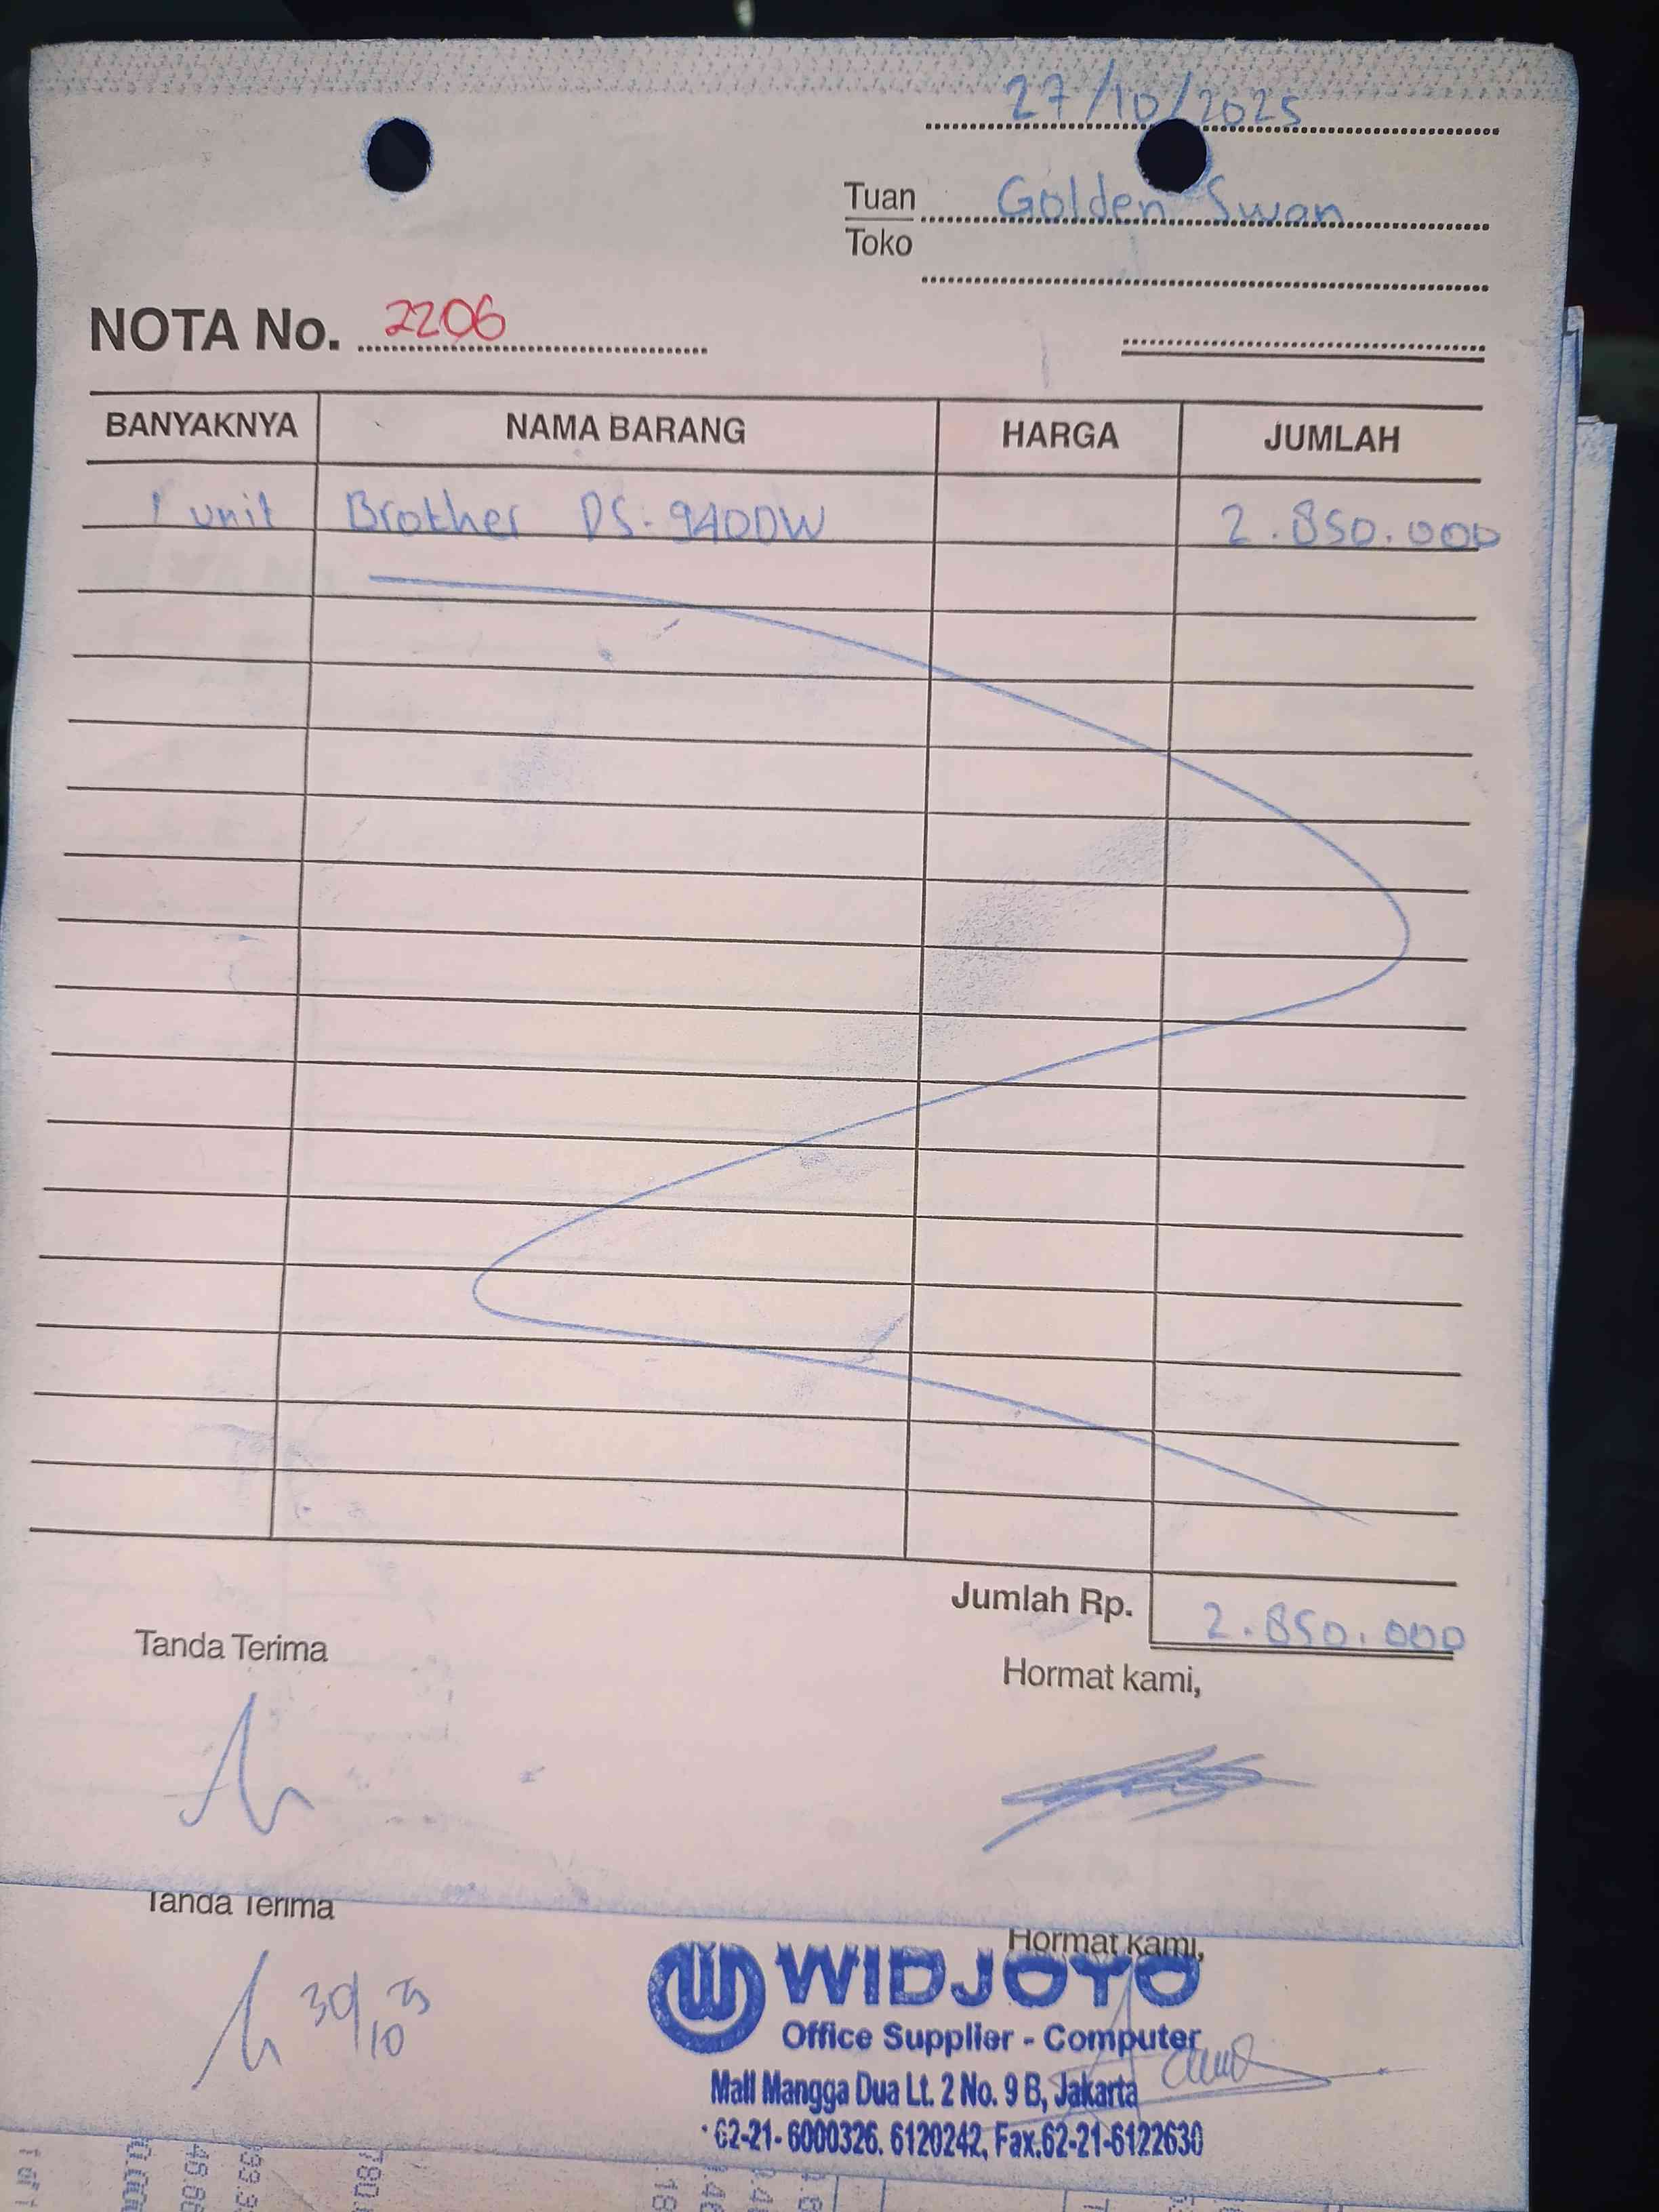 27/10/2025
Tuan Golden Swan
Toko
NOTA No. 2206
BANYAKNYA NAMA BARANG HARGA JUMLAH
1 unit Brother DS-940DW 2.850.000
Jumlah Rp. 2.850.000
Tanda Terima
Hormat kami,
Tanda Terima
Hormat kami,
30/10 25
WIDJOYO
Office Supplier - Computer
Mall Mangga Dua Lt. 2 No. 9 B, Jakarta
62-21- 6000326. 6120242, Fax.62-21-6122630